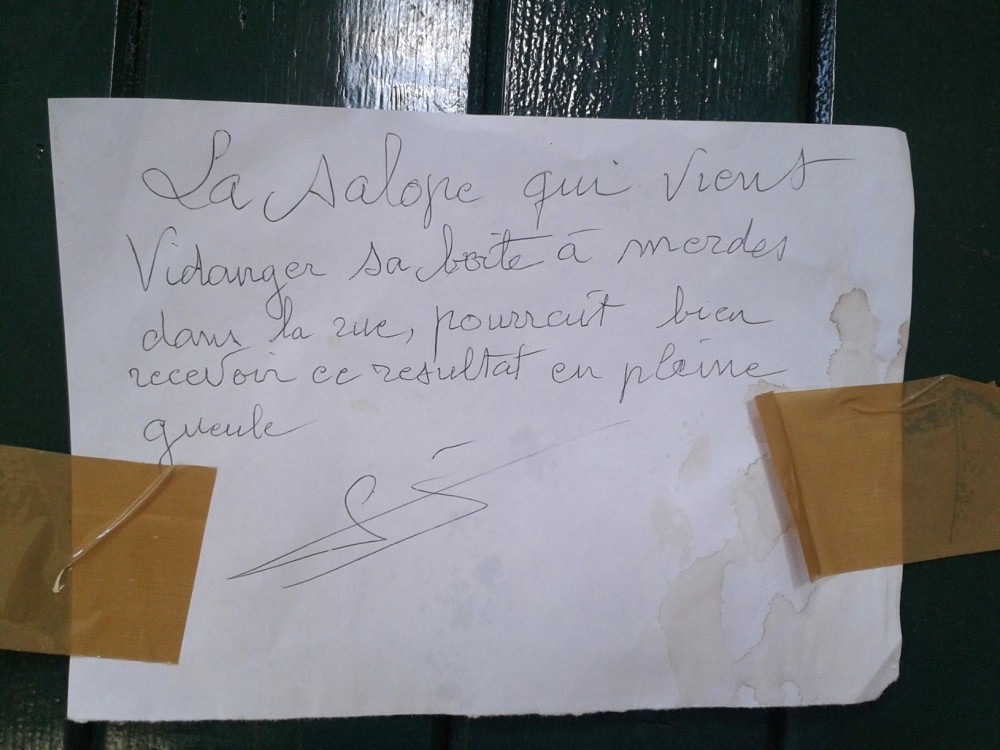 La salope qui vient
Vidanger sa boîte à merdes
dans la rue, pourrait bien
recevoir ce resultat en pleine
gueule